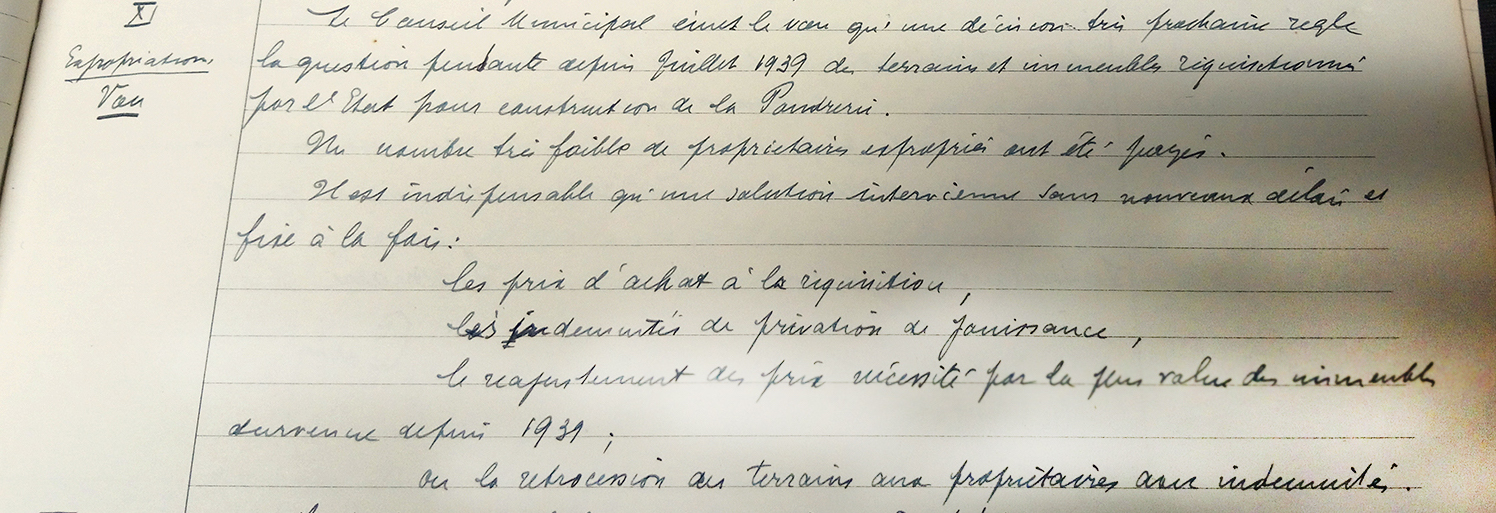 X
Expropriations
Vœu
Le Conseil Municipal émet le vœu qu'une décision très prochaine règle
la question pendante depuis Juillet 1939 des terrains et immeubles réquisitionnés
par l'Etat pour construction de la Poudrerie.
Un nombre très faible de propriétaires expropriés ont été payés.
Il est indispensable qu'une solution intervienne sans nouveaux délais et
fixe à la fois :
les prix d'achat à la réquisition,
les indemnités de privation de jouissance,
le réajustement des prix nécessité par la plus value des immeubles
survenue depuis 1939 ;
ou la retrocession des terrains aux propriétaires avec indemnités.